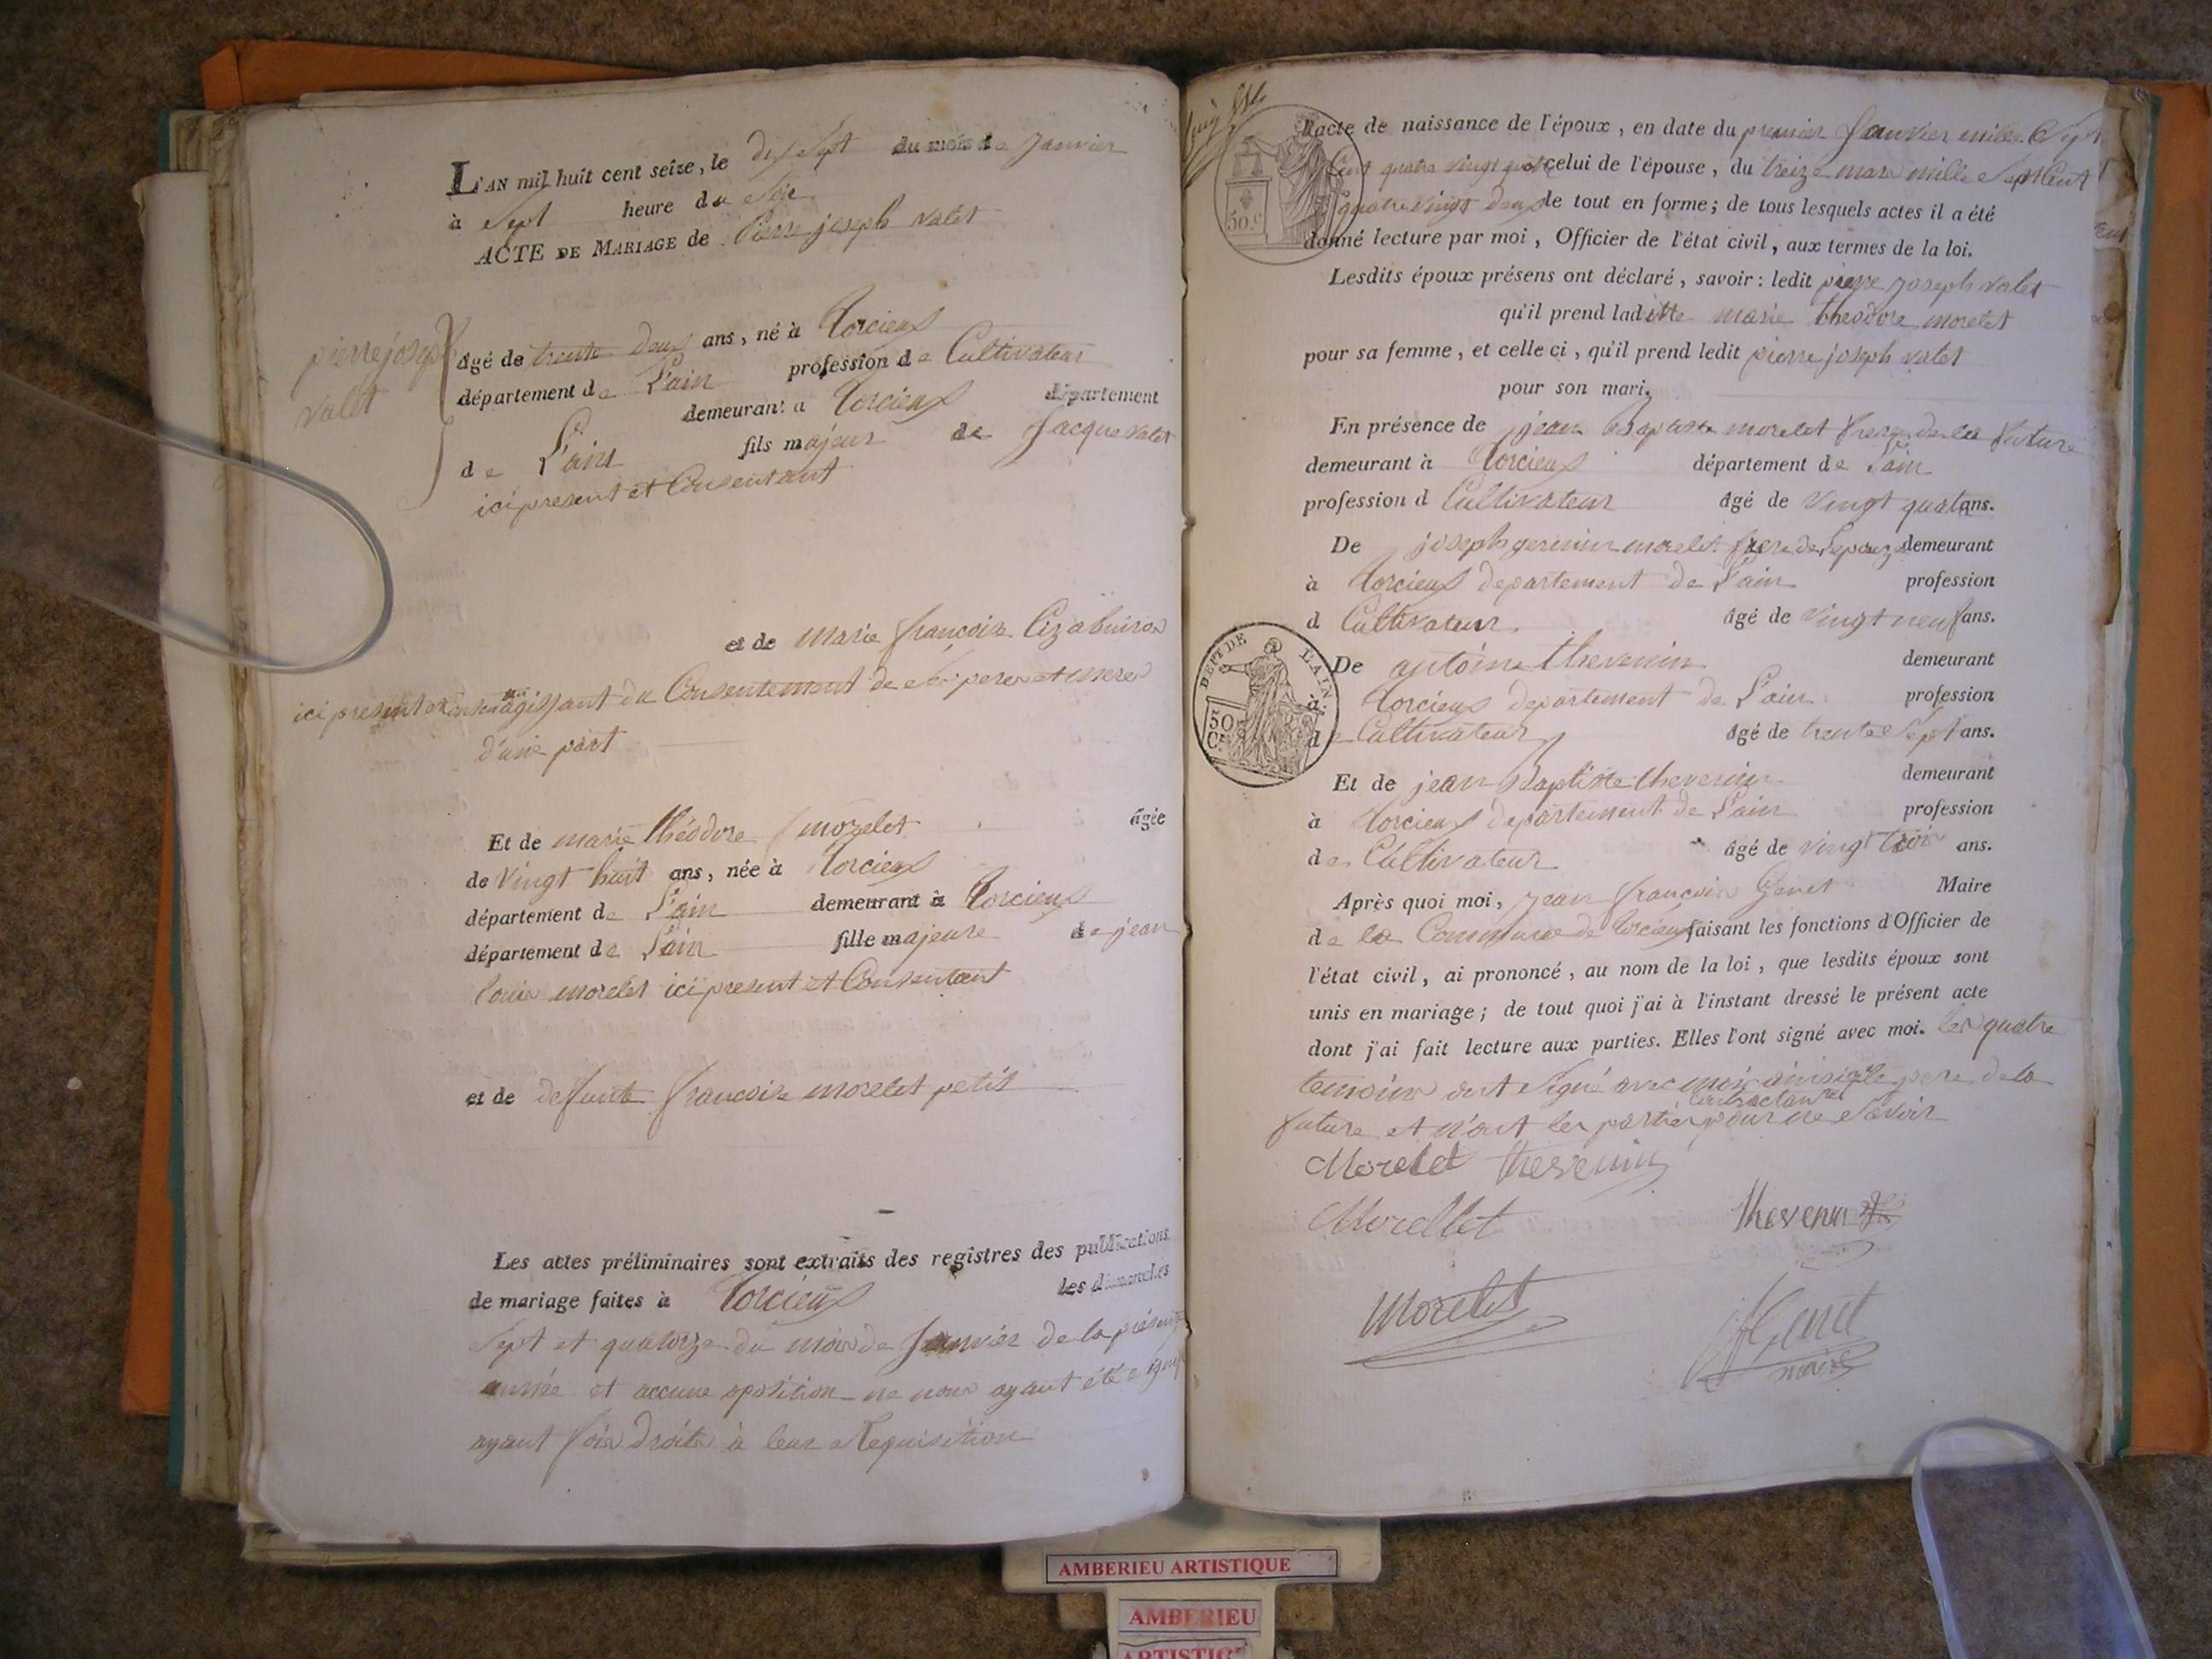 L'AN mil huit cent seize, le dix Sept du mois de Janvier
à Sept heure du Soir
ACTE DE MARIAGE de Pierre joseph valet
pierre joseph
valet
âgé de trente deux ans, né à Torcieux
département de L'ain profession de Cultivateur
demeurant a Torcieux département
de L'ain fils majeur de Jacque valet
ici present et Consentant
et de marie francoise
ici present agissant du Consentement de Ses peres et meres
d'une part
Et de marie théodore morelet âgée
de Vingt huit ans, née à Torcieux
département de L'ain demeurant à Torcieux
département de L'ain fille majeure de jean
louis morelet ici present et Consentant
et de defunte francoise morelet petit
Les actes préliminaires sont extraits des registres des publications
de mariage faites à Torcieux les dimanches
Sept et quatorze du mois de Janvier de la présente
année et accune oposition ne nous ayant été
ayant fois droits à leur Requisition
50.c
L'acte de naissance de l'époux, en date du premier Janvier mille Sept
Cent quatre vingt quatre celui de l'épouse, du treize mars mille Sept Cent
quatre Vingt deux le tout en forme; de tous lesquels actes il a été
donné lecture par moi, Officier de l'état civil, aux termes de la loi.
Lesdits époux présens ont déclaré, savoir: ledit pierre joseph valet
qu'il prend laditte marie theodore morelet
pour sa femme, et celle ci, qu'il prend ledit pierre joseph valet
pour son mari.
En présence de jean Baptiste morelet frere de la future
demeurant à Torcieux département de L'ain
profession d Cultivateur âgé de Vingt quatre ans.
De joseph germain morelet frere de Lepouze demeurant
à Torcieux departement de L'ain profession
d Cultivateur âgé de vingt neuf ans.
DEPT DE L'AIN.
50 C.
De antoine thevenin demeurant
à Torcieux departement de L'ain profession
de Cultivateur âgé de trente Sept ans.
Et de jean Baptiste thevenin demeurant
à Torcieux departement de L'ain profession
de Cultivateur âgé de vingt trois ans.
Après quoi moi, jean francois Genet Maire
de la Commune de Torcieux faisant les fonctions d'Officier de
l'état civil, ai prononcé, au nom de la loi, que lesdits époux sont
unis en mariage; de tout quoi j'ai à l'instant dressé le présent acte
dont j'ai fait lecture aux parties. Elles l'ont signé avec moi. les quatre
temoins ont Signé avec moi ainsi que le pere de la
contractantes
future et n'ont les parties pour ne Savoir
Morelet thevenin
Morellet thevenin
Morelet
Genet
maire
AMBERIEU ARTISTIQUE
AMBERIEU